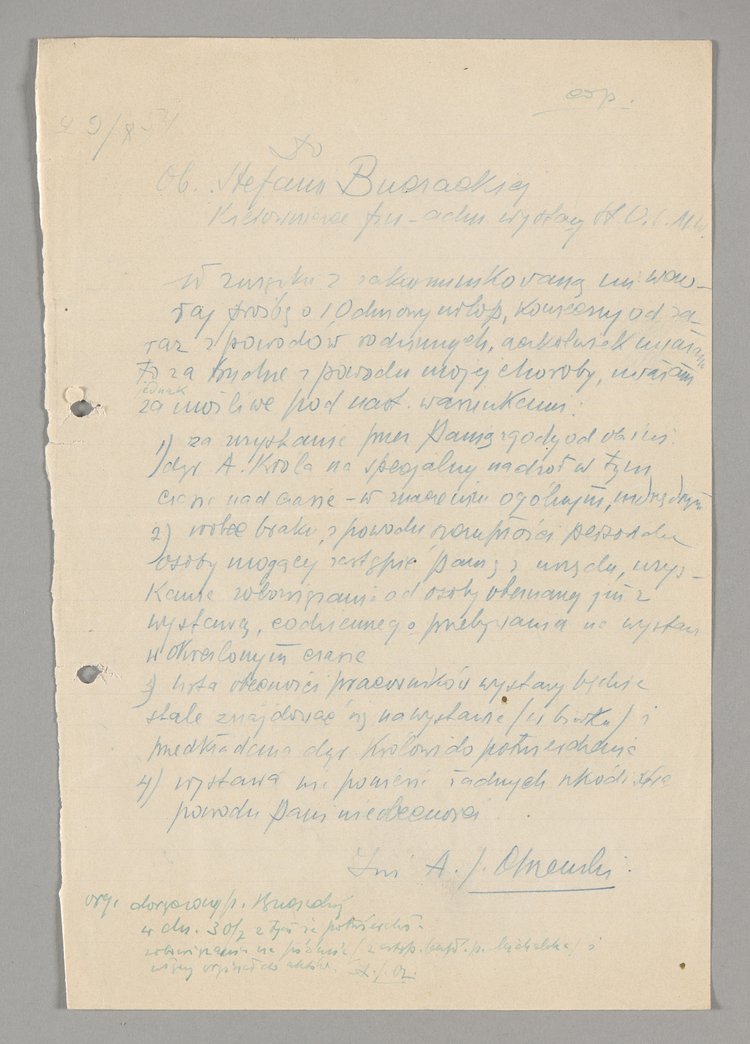 odp.
29/X 51
Do
Ob. Stefanii Bucrackiej
Kierowniczce fin-adm wystawy
W związku z zakomunikowaną mi wczo-
raj prośbą o 10 dniowy urlop, konieczny od za-
raz z powodów rodzinnych, aczkolwiek uważam
to za trudne z powodu mojej choroby, uważam
jednak
za możliwe pod nast. warunkami:
1) za uzyskanie przez Panią zgody od
dyr A. Króla na specjalny nadzór w tym
czasie nad
w znaczeniu ogólnym,
2) wobec braku, z powodu szczupłości personelu
osoby mogącej zastąpić Panią z urzędu, uzys-
kanie zobowiązania od osoby obeznanej już z
wystawą, codziennego przebywania na wystawie
w określonym czasie
3) lista obecności pracowników wystawy będzie
stale znajdować się na wystawie /w biurku/ i
przedkładana dyr Królowi do potwierdzenia
4) wystawa nie poniesie żadnych szkód z
powodu Pani nieobecności
Inż A. J.
oryg. doręczony p.
w dn. 30/X z tym że
zobowiązanie na piśmie
oryginał do aktów.